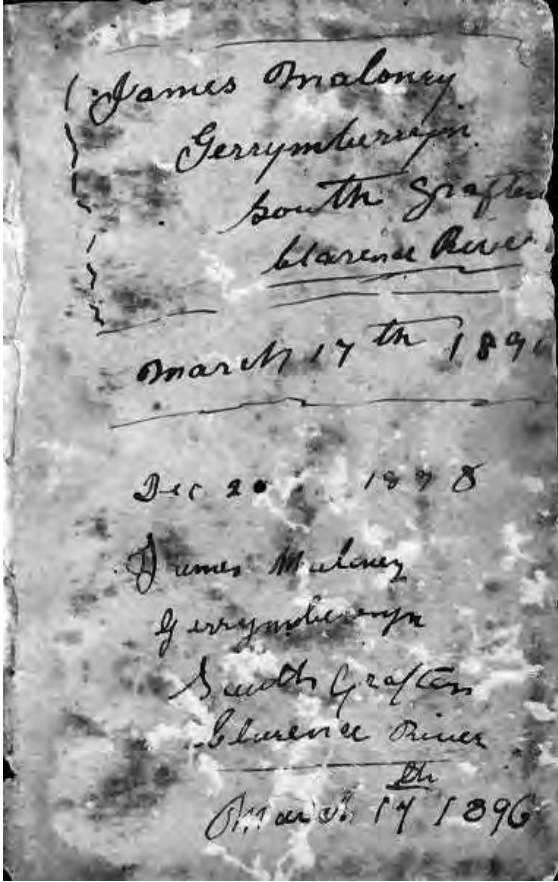 James Maloney
Gerrymberryn
South Grafton
Clarence River
March 17th 1896
Dec 20 1898
James Maloney
Gerrymberryn
South Grafton
Clarence River
March 17th 1896